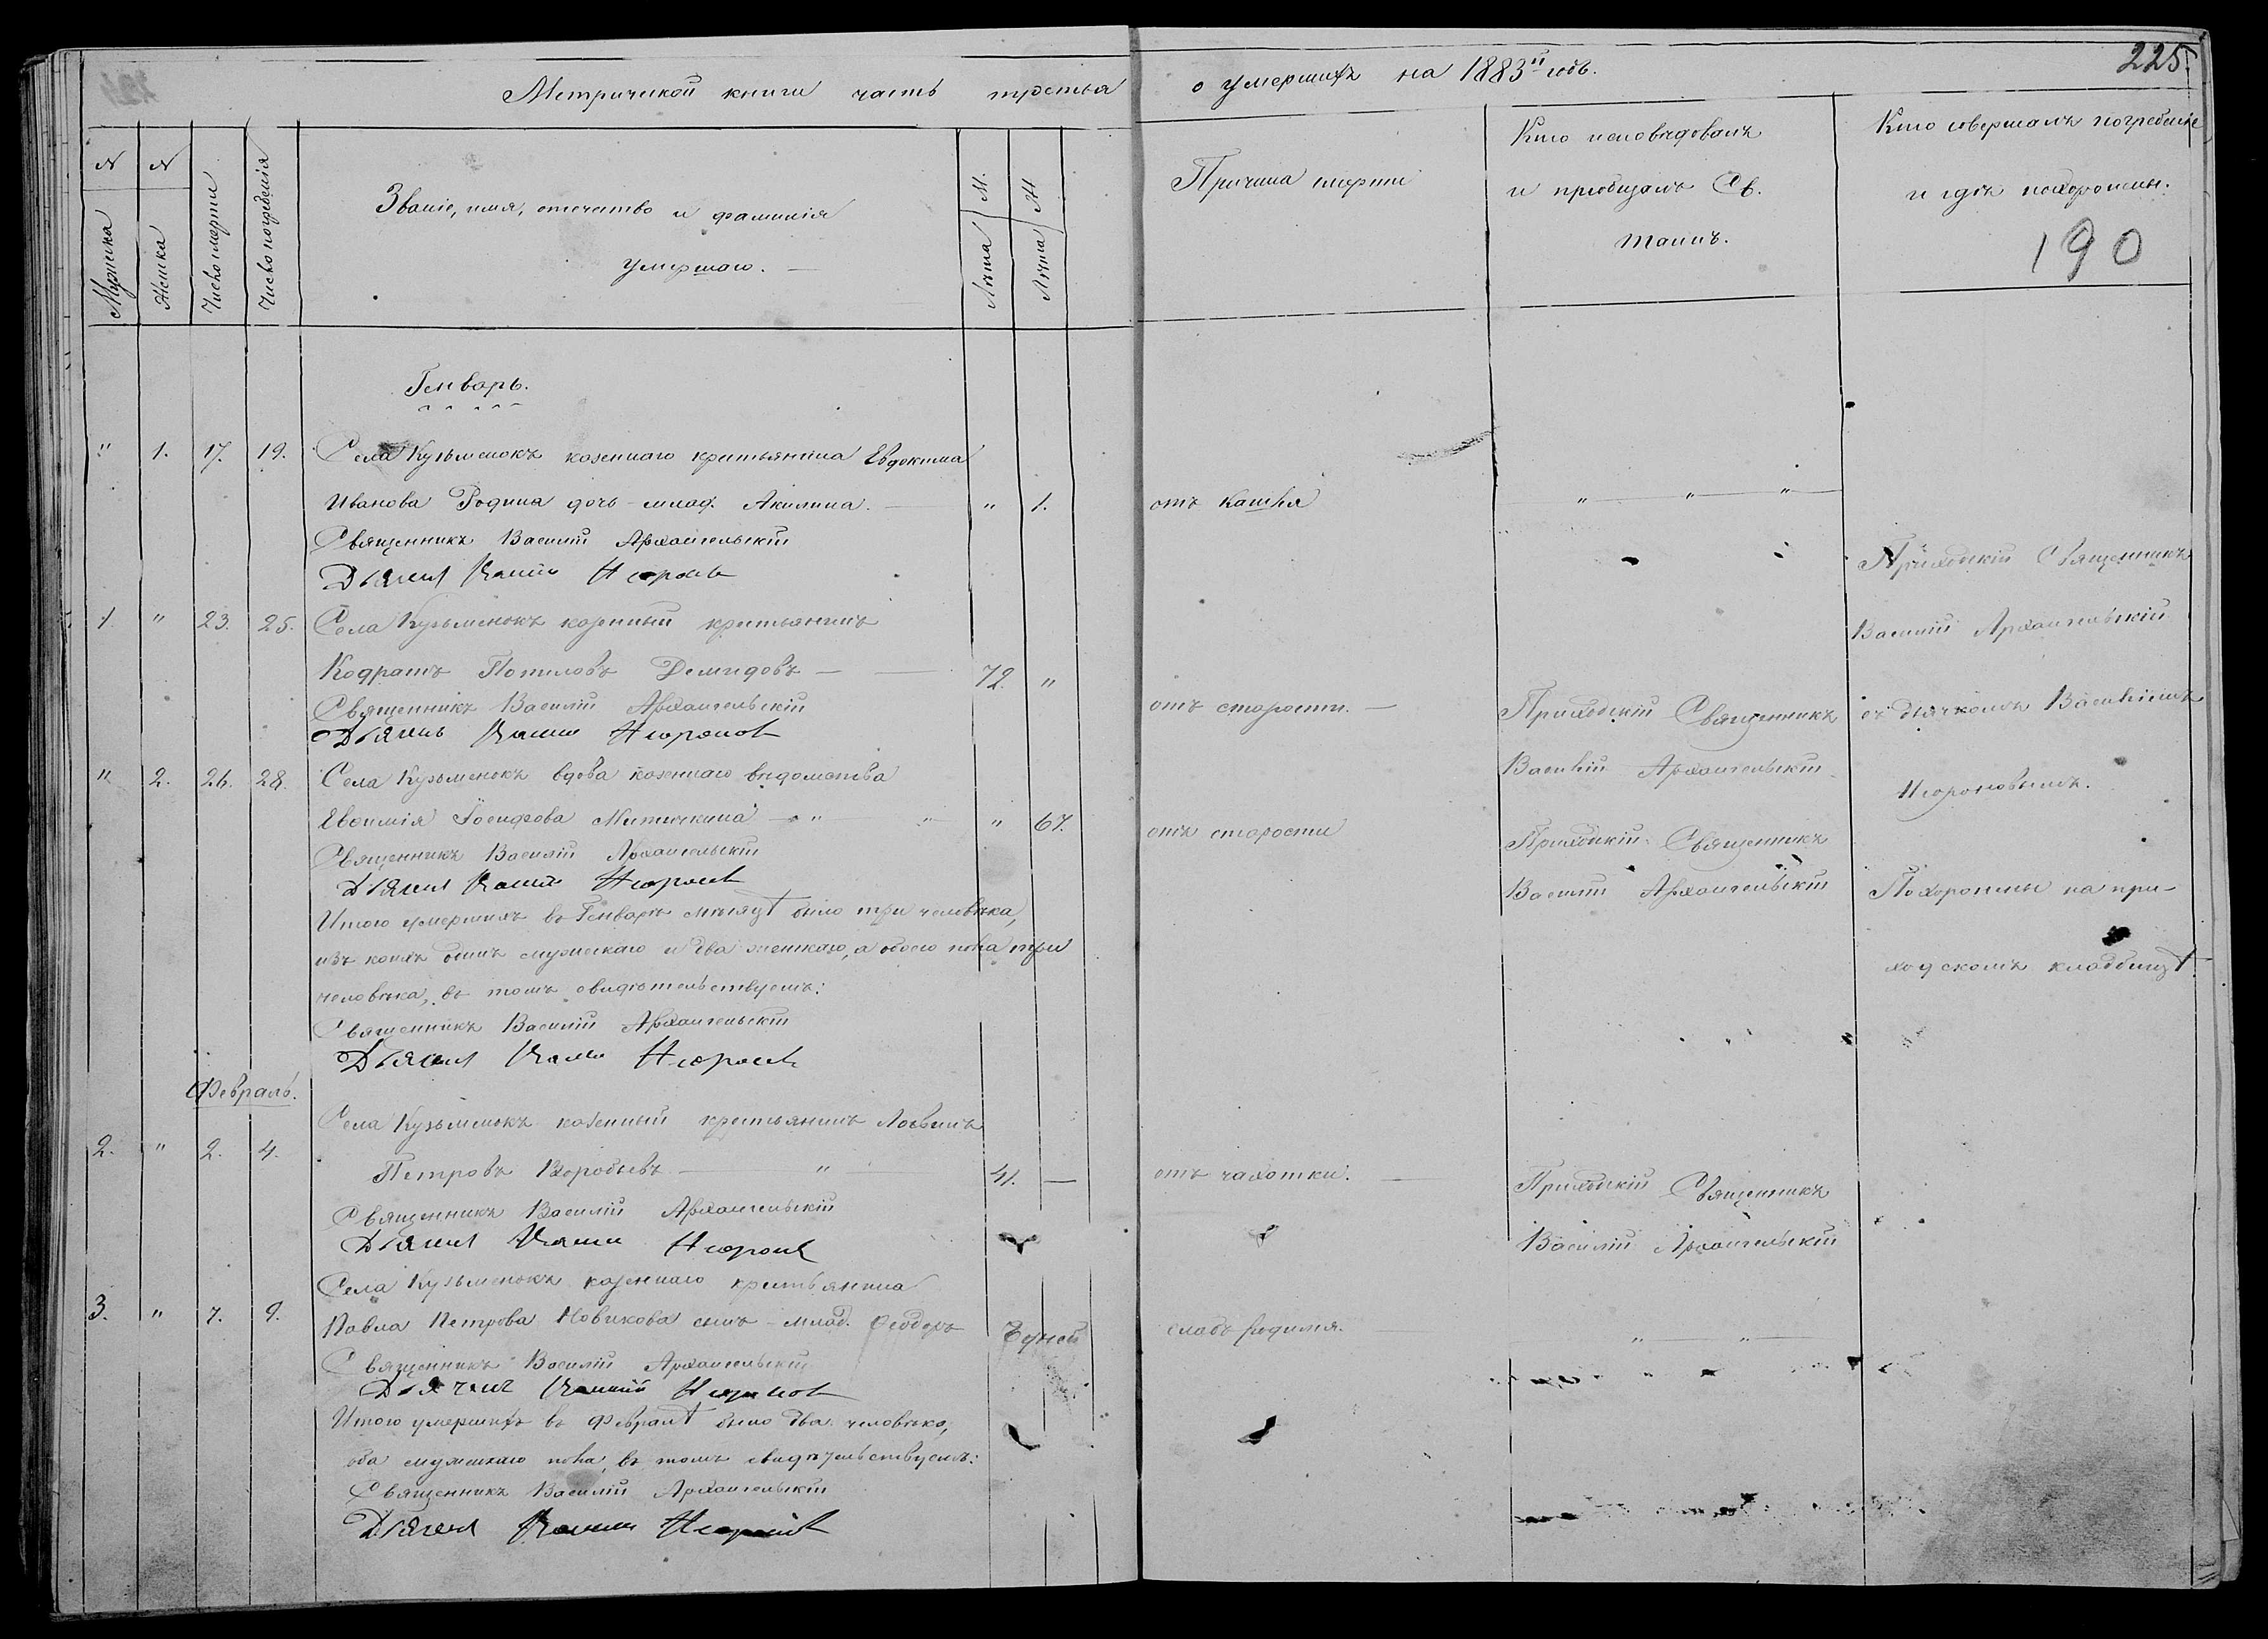 Метрической книги часть третья о умершихъ на 1883й годъ.
225.
№ Мужеска
№ Женска
Число смерти
Число погребенія
Званіе, имя, отечество и фамилія
умершаго.
Лѣта М.
Лѣта Ж.
Причина смерти
Кто исповѣдовалъ
и пріобщалъ Св.
Таинъ.
Кто совершалъ погребеніе
и гдѣ похоронены.
190
Генварь.
" 1. 17. 19. Села Кузьменокъ казеннаго крестьянина Евдокима
Иванова Родина дочь млад. Акилина. " 1. отъ кашля " " "
Священникъ Василій Архангельскій
Дьячекъ Василій
1 " 23. 25. Села Кузьменокъ казенный крестьянинъ
Кодратъ Потиловъ Демидовъ 72. " отъ старости. Приходскій Священникъ
Священникъ Василій Архангельскій Василій Архангельскій
Дьячекъ Василій
" 2. 26. 28. Села Кузьменокъ вдова казеннаго вѣдомства
Евфимія Іосифова Митичкина " " " 67. отъ старости Приходскій Священникъ
Священникъ Василій Архангельскій Василій Архангельскій
Дьячекъ Василій
Приходскій Священникъ
Василій Архангельскій
съ дьячкомъ Василіемъ
Похоронены на при-
ходскомъ кладбищѣ
Итого умершихъ въ Генварѣ мѣсяцѣ было три человѣка,
изъ коихъ одинъ мужескаго и два женскаго, а обоего пола три
человѣка, въ томъ свидѣтельствуемъ:
Священникъ Василій Архангельскій
Дьячекъ Василій
Февраль.
2. " 2. 4. Села Кузьменокъ казенный крестьянинъ Логвинъ
Петровъ Воробьевъ " 41. — отъ чахотки. Приходскій Священникъ
Священникъ Василій Архангельскій Василій Архангельскій
Дьячекъ Василій
Села Кузьменокъ казеннаго крестьянина
3. " 7. 9. Павла Петрова Новикова сынъ млад. Ѳеодоръ 7 дней слабъ родился. " "
Священникъ Василій Архангельскій
Дьячекъ Василій
Итого умершихъ въ Февралѣ было два человѣка,
оба мужескаго пола, въ томъ свидѣтельствуемъ:
Священникъ Василій Архангельскій
Дьячекъ Василій